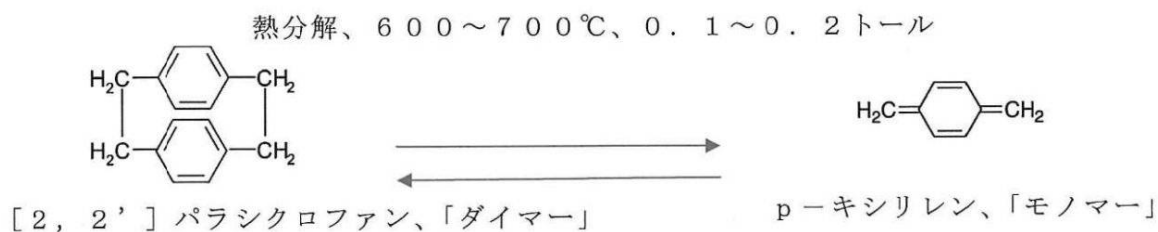 熱分解、６００～７００℃、０．１～０．２トール
H₂C CH₂
H₂C CH₂
H₂C CH₂
［２，２’］パラシクロファン、「ダイマー」
ｐ－キシリレン、「モノマー」